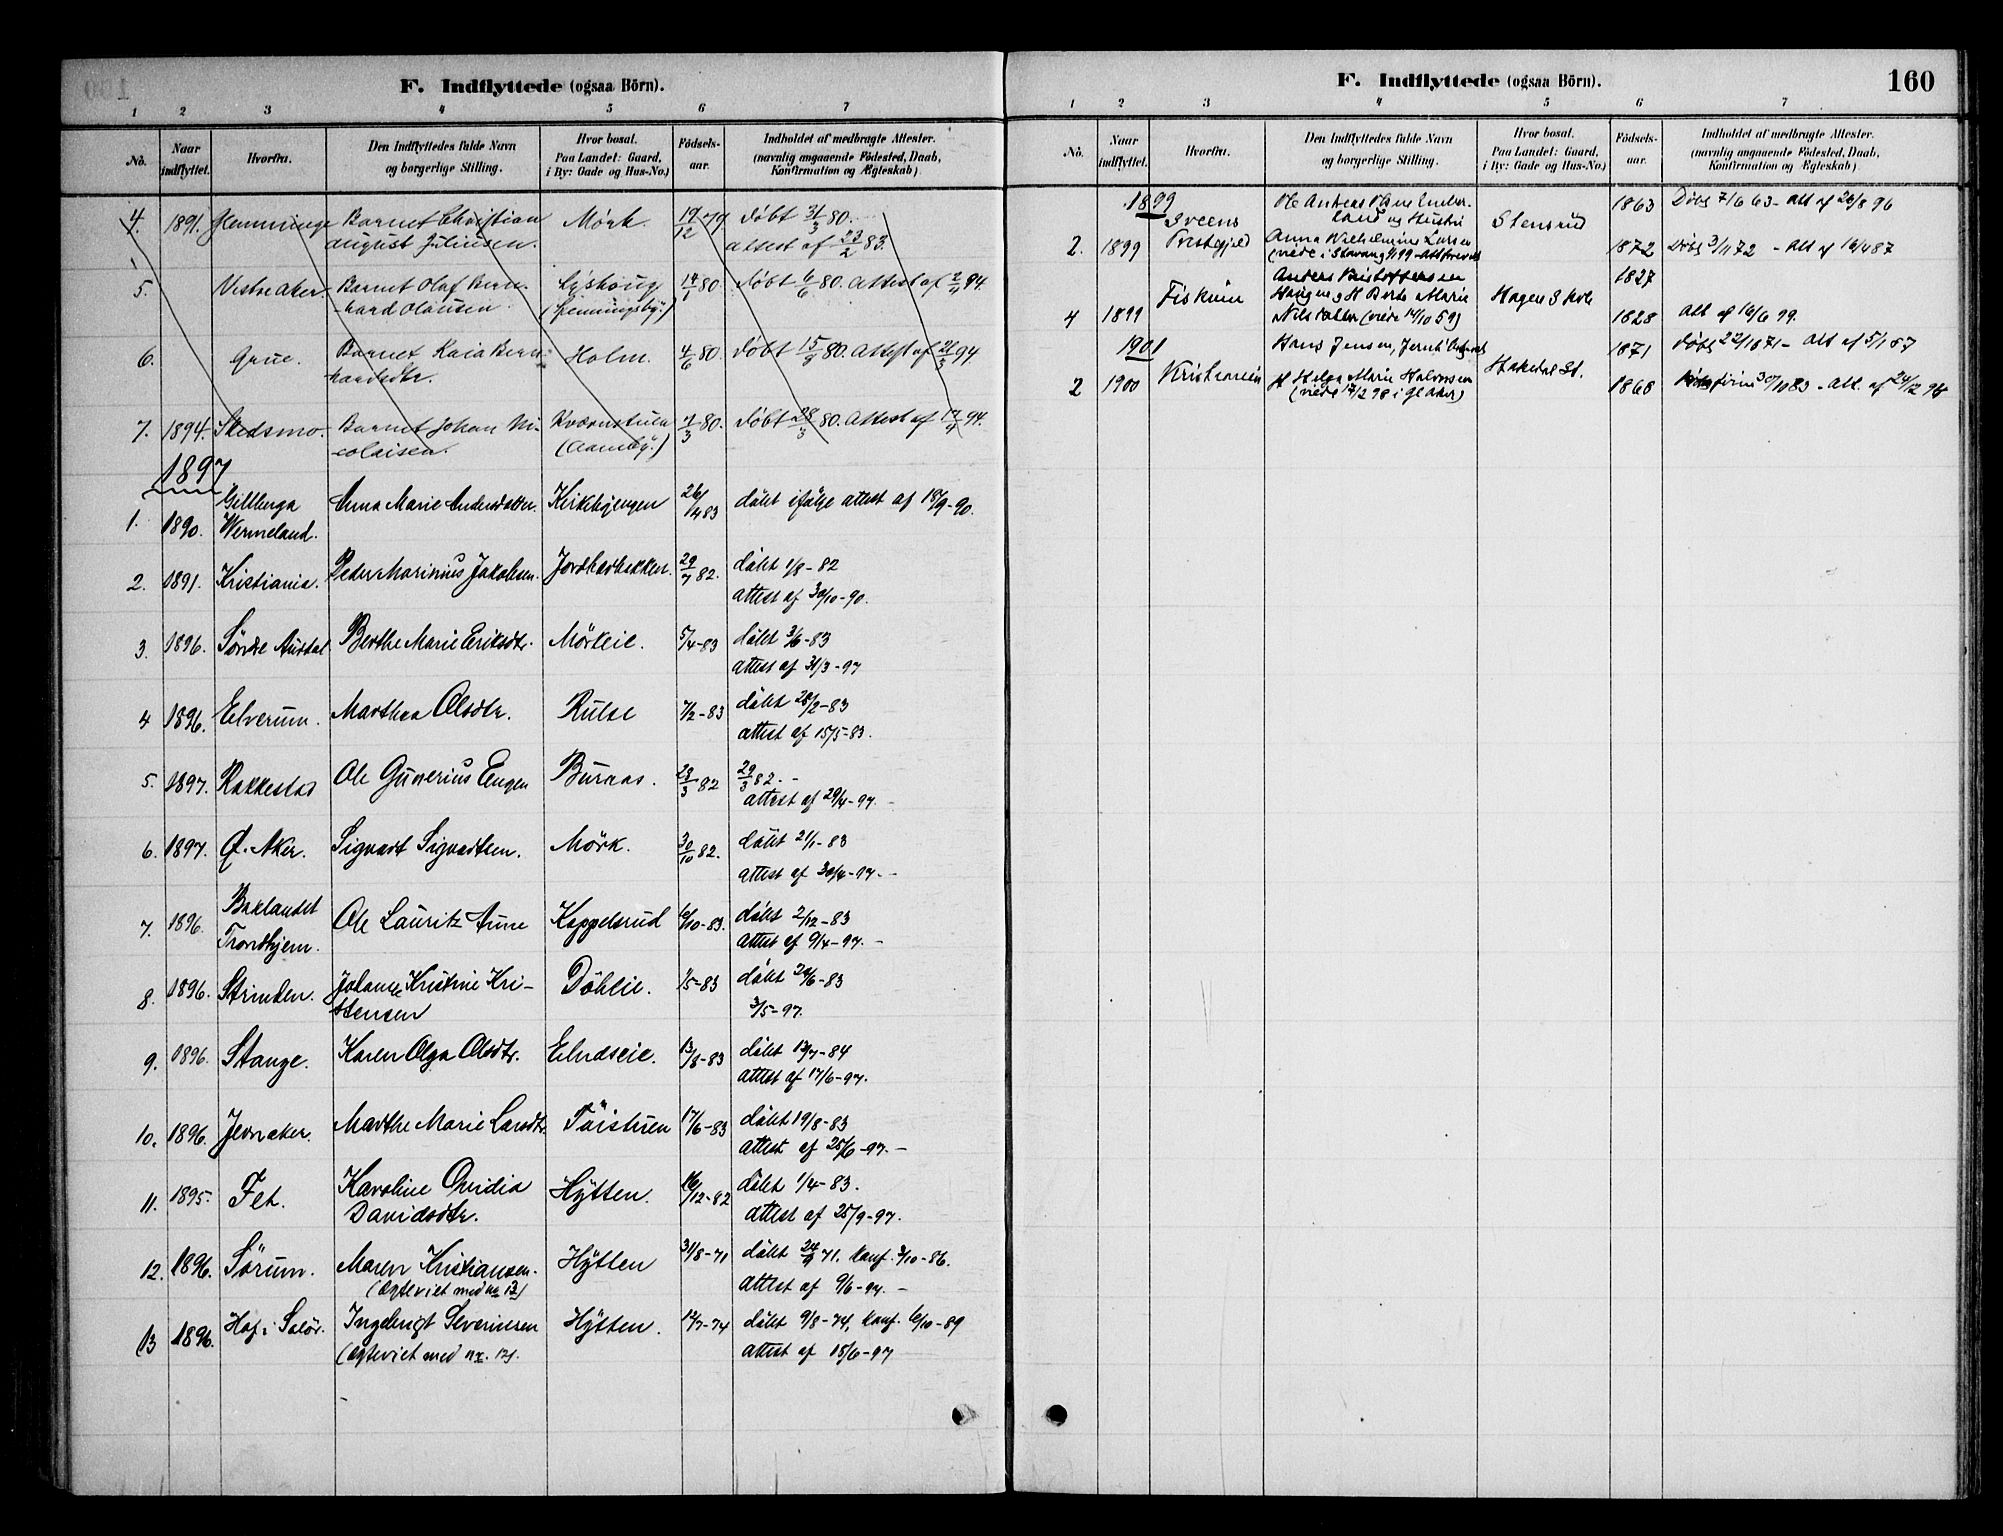 F. Indflyttede (ogsaa Börn).
1 2 3 4 5 6 7
No. Naar indflyttet. Hvorfra. Den Indflyttedes fulde Navn og borgerlige Stilling. Hvor bosat. Paa Landet: Gaard, i By: Gade og Hus-No.) Födsels-aar. Indholdet af medbragte Attester. (navnlig angaaende Födested, Daab, Konfirmation og Ægteskab)
4. 1891. Hemminge Barnet Christian Mörk. 19/12 79. döbt 31/3 80.
august Juliusen. attest af 23/2 83.
5. Vestre Aker. Barnet Olaf Bern- 14/1 80 döbt 6/6 80. attest af
hard Olausen.
6. Grue. Barnet Kaia Bern- Holm. 4/6 80. döbt 15/8 80. attest af 21/3 94.
hardsdtr.
7. 1894. Skedsmo. Barnet Johan Ni- Kværnstuen 7/3 80. döbt 28/3 80. attest af 94.
colaisen. (Aamby.)
1897
1. 1890. Gillberga Anna Marie Andersdatter. Kirkebyengen 26/4 83 döbt ifölge attest af 18/9-90.
Wermeland.
2. 1891. Kristiania. Peder Marinius Jakobsen. Jordbærbakken. 29/7 82. döbt 1/8-82
attest af 30/10-90.
3. 1896. Söndre Aurdal Berthe Marie Eriksdtr. Mörkeie. 5/4-83 döbt 3/6-83
attest af 31/3-97
4 1896. Elverum. Marthea Olsdtr. Rulse 7/2-83 döbt 28/2-83
attest af 15/5-83.
5. 1897. Rakkestad Ole Gunerius Eugen Buraas. 23/3 82 29/3 82.-
attest af 29/4-97.-
6. 1897. Ø. Aker. Sigvart Sigvartsen. Mörk. 30/10 82. döbt 21/1-83
attest af 30/4-97.-
7. 1896. Baklandet Ole Lauritz Aune Kappelsrud 6/10-83. döbt 2/12-83
Trondhjem. attest af 9/4-97.-
8. 1896. Strinden. Johanne Kristine Kri- Döhlie. 1/5-83 döbt 24/6-83
stensen 3/5-97.
9. 1896. Stange. Karen Olga Olsdtr. 13/8-83 döbt 13/7-84
attest af 17/6-97.
10. 1896. Jevnaker. Marthe Marie Larsdtr. Töistuen 17/6-83 döbt 19/8-83
attest af 25/6-97.-
11. 1895. Fet. Karoline Ovidia Hÿtten. 16/12-82 döbt 1/4-83.
Davidsdtr. attest af 25/9-97.
12. 1896. Sörum. Maren Kristiansen. Hÿtten 31/8-71 döbt 24/9 71. konf. 3/10-86.
(Ægteviet med no 13) attest af 9/6-97.-
13 1896. Hof i Solör. Ingebrigt Severinsen Hÿtten. 12/7-74 döbt 9/8-74, konf. 6/10-89
(Ægteviet med nr. 12). attest af 15/6-97
F. Indflyttede (ogsaa Börn). 160
1 2 3 4 5 6 7
No. Naar indflyttet. Hvorfra. Den Indflyttedes fulde Navn og borgerlige Stilling. Hvor bosat. Paa Landet: Gaard, i By: Gade og Hus-No.) Födsels-aar. Indholdet af medbragte Attester. (navnlig angaaende Födested, Daab, Konfirmation og Ægteskab)
1899 Ole Andreas 1863 Döbt 7/6 63 - Att af 26/8 96
Sveens land og Hustru Stensrud
2. 1899 Prestegjeld Anna Wilhelmine Larsen 1872 Döbt 3/11 72 - Att af 16/4 87
Anders Kristoffersen 1827
Fiskum Haugen og H Berte Marie Hagen S kole
4 1899 Nilsdatter (viede 14/10 59) 1828 Att af 16/6 99.
1901 Hans Jensen, 1871 Döbt 22/1 871 - Att af
Kristiania H Helga Marie Halvorsen Hakedal St.
2 1900 (viede 17/2 98 i Gl Aker) 1868 30/10 83 - Att. af